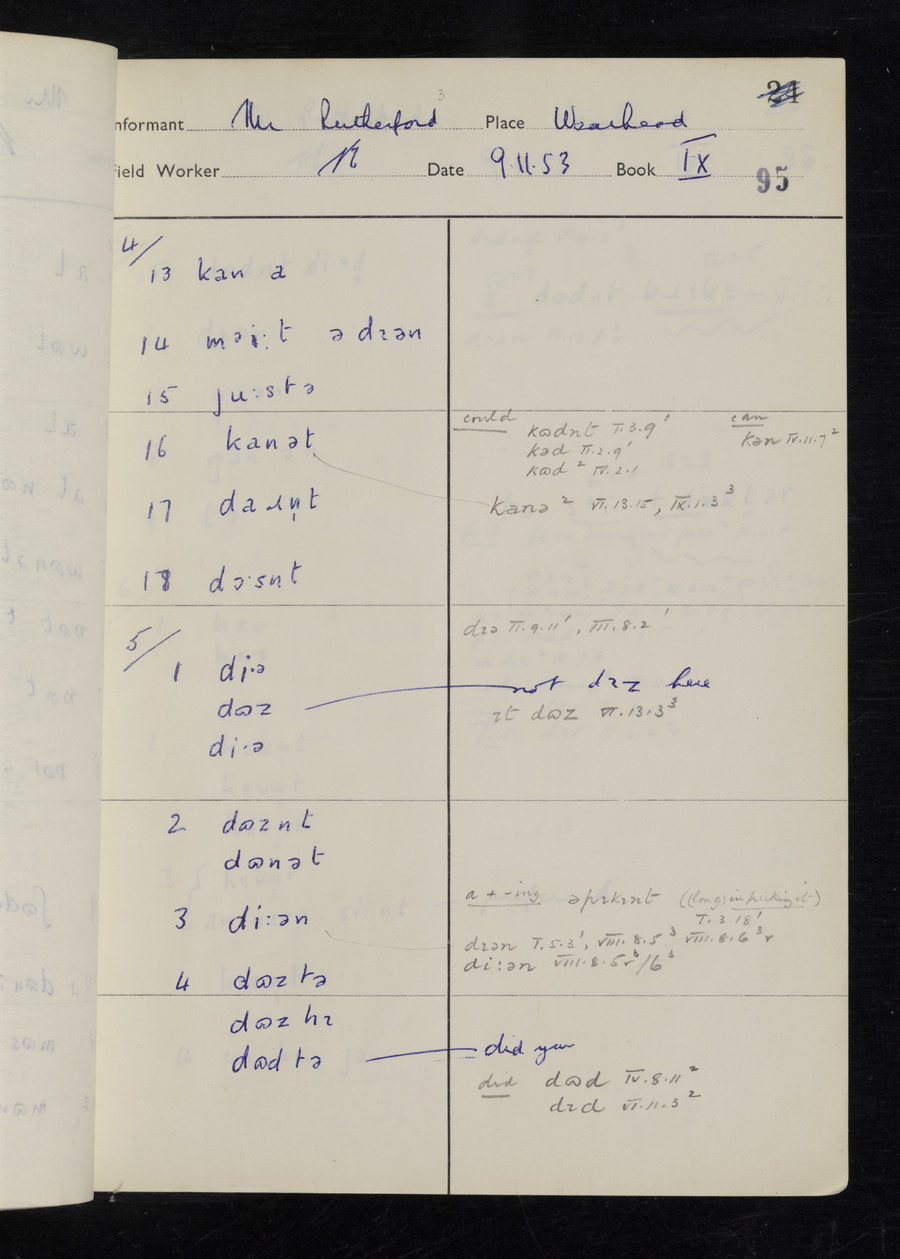 3
24
Informant Mr Rutherford Place Wearhead
Field Worker Date 9.11.53 Book IX
95
4/
13 kan a
14 məi:t ə dɪən
15 ju:stə
could can
16 kanət kɷdnt II.3.9' kən IV.11.7²
kəd II.2.9'
kɷd² IV.2.1
17 kanə² VI.13.15, IX.1.3³
18
5/ dɪə II.9.11', III.8.2'
1 di·ə
dɷz not dɪz here
ɪt dɷz VI.13.3³
di·ə
2 dɷznt
dɷnət
a + -ing əpɪkɪnt ((long) in picking it)
3 di:ən I.3.18'
dɪən I.5.3', VIII.8.5³ VIII.8.6³r
di:ən VIII.8.5r³/6³
4 dɷz tə
dɷz hɪ
dɷd tə did you
did dɷd IV.8.11²
dɪd VI.11.3²